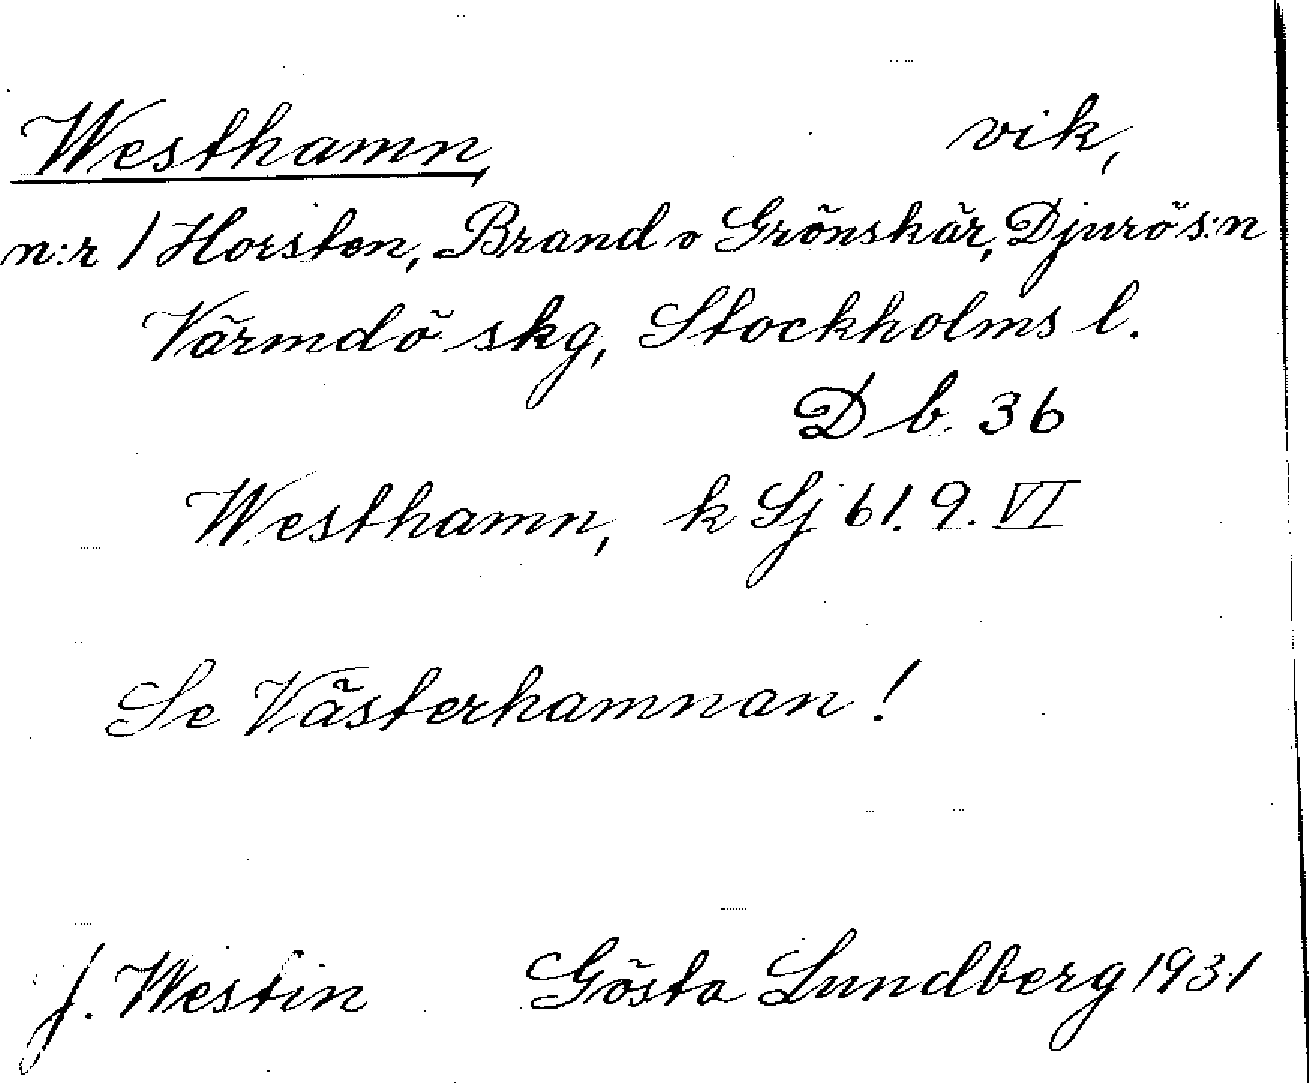 Westhamn, vik,
n:r 1 Horsten, Brand o Grönskär, Djurö s:n
Värmdö skg, Stockholms l.
D b. 36
Westhamn, k Sj 61. 9. VI
Se Västerhamnan!
J. Westin Gösta Lundberg 1931